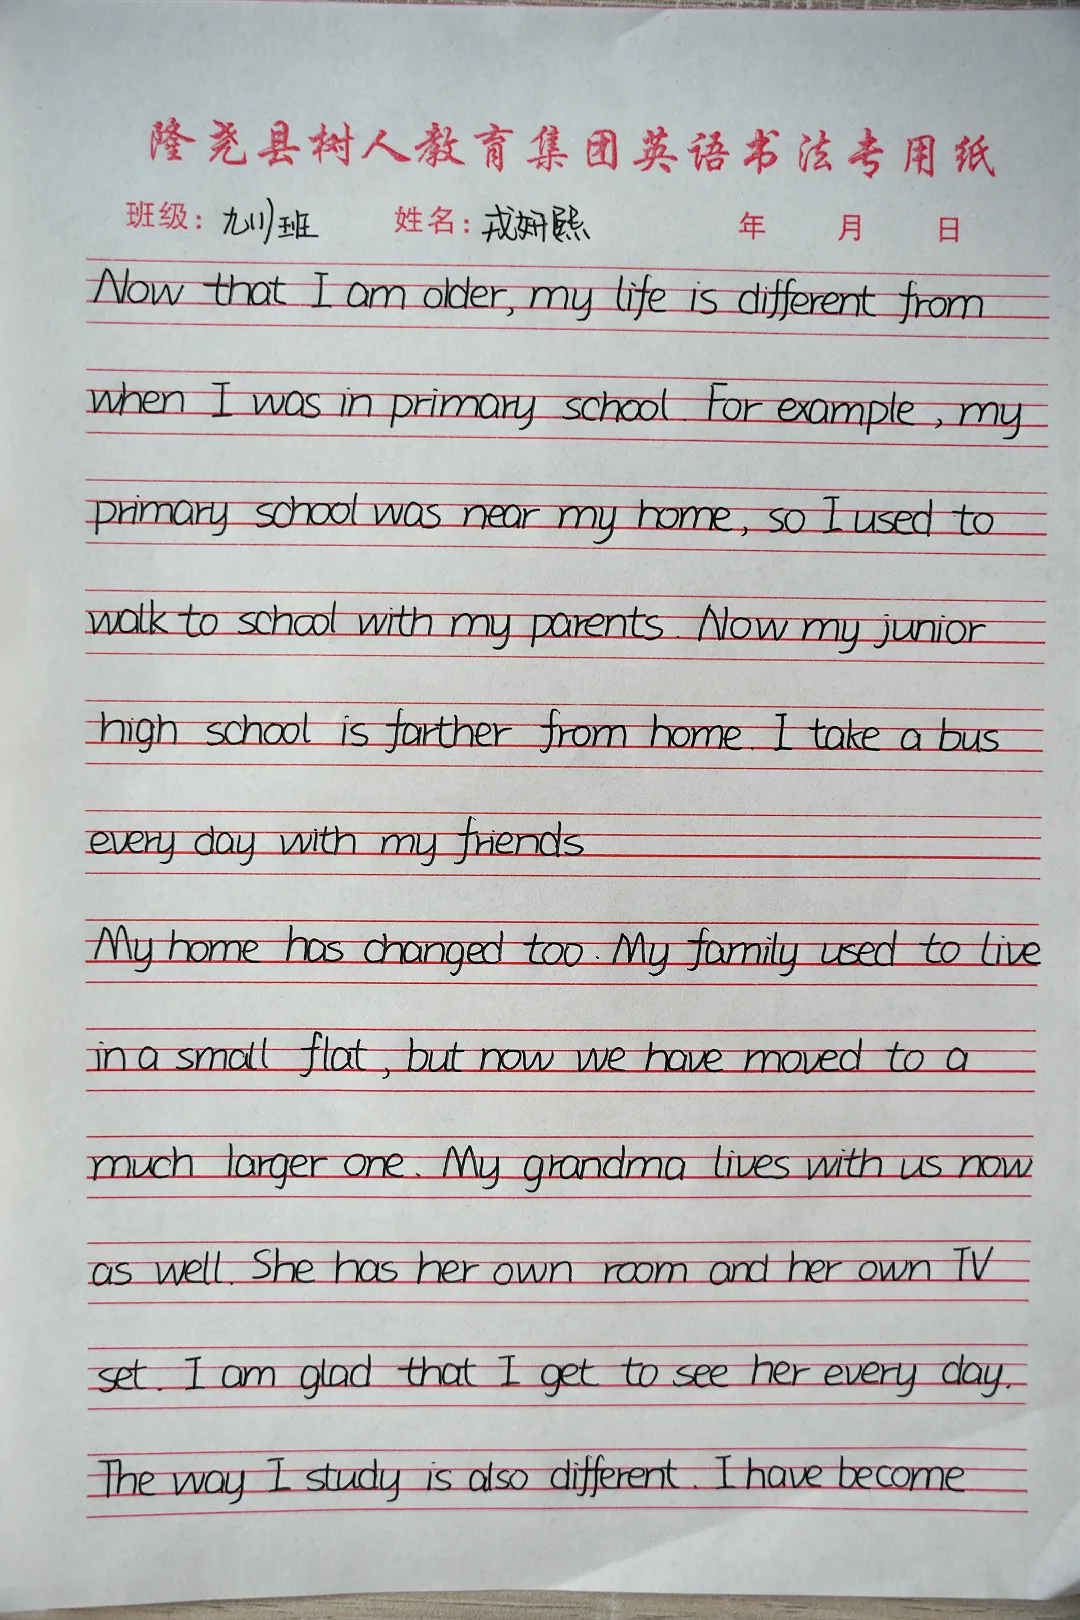 隆尧县树人教育集团英语书法专用纸
班级: 九(1)班 姓名: 戎妍熙 年 月 日
Now that I am older, my life is different from
when I was in primary school. For example, my
primary school was near my home, so I used to
walk to school with my parents. Now my junior
high school is farther from home. I take a bus
every day with my friends
My home has changed too. My family used to live
in a small flat, but now we have moved to a
much larger one. My grandma lives with us now
as well. She has her own room and her own TV
set. I am glad that I get to see her every day.
The way I study is also different. I have become